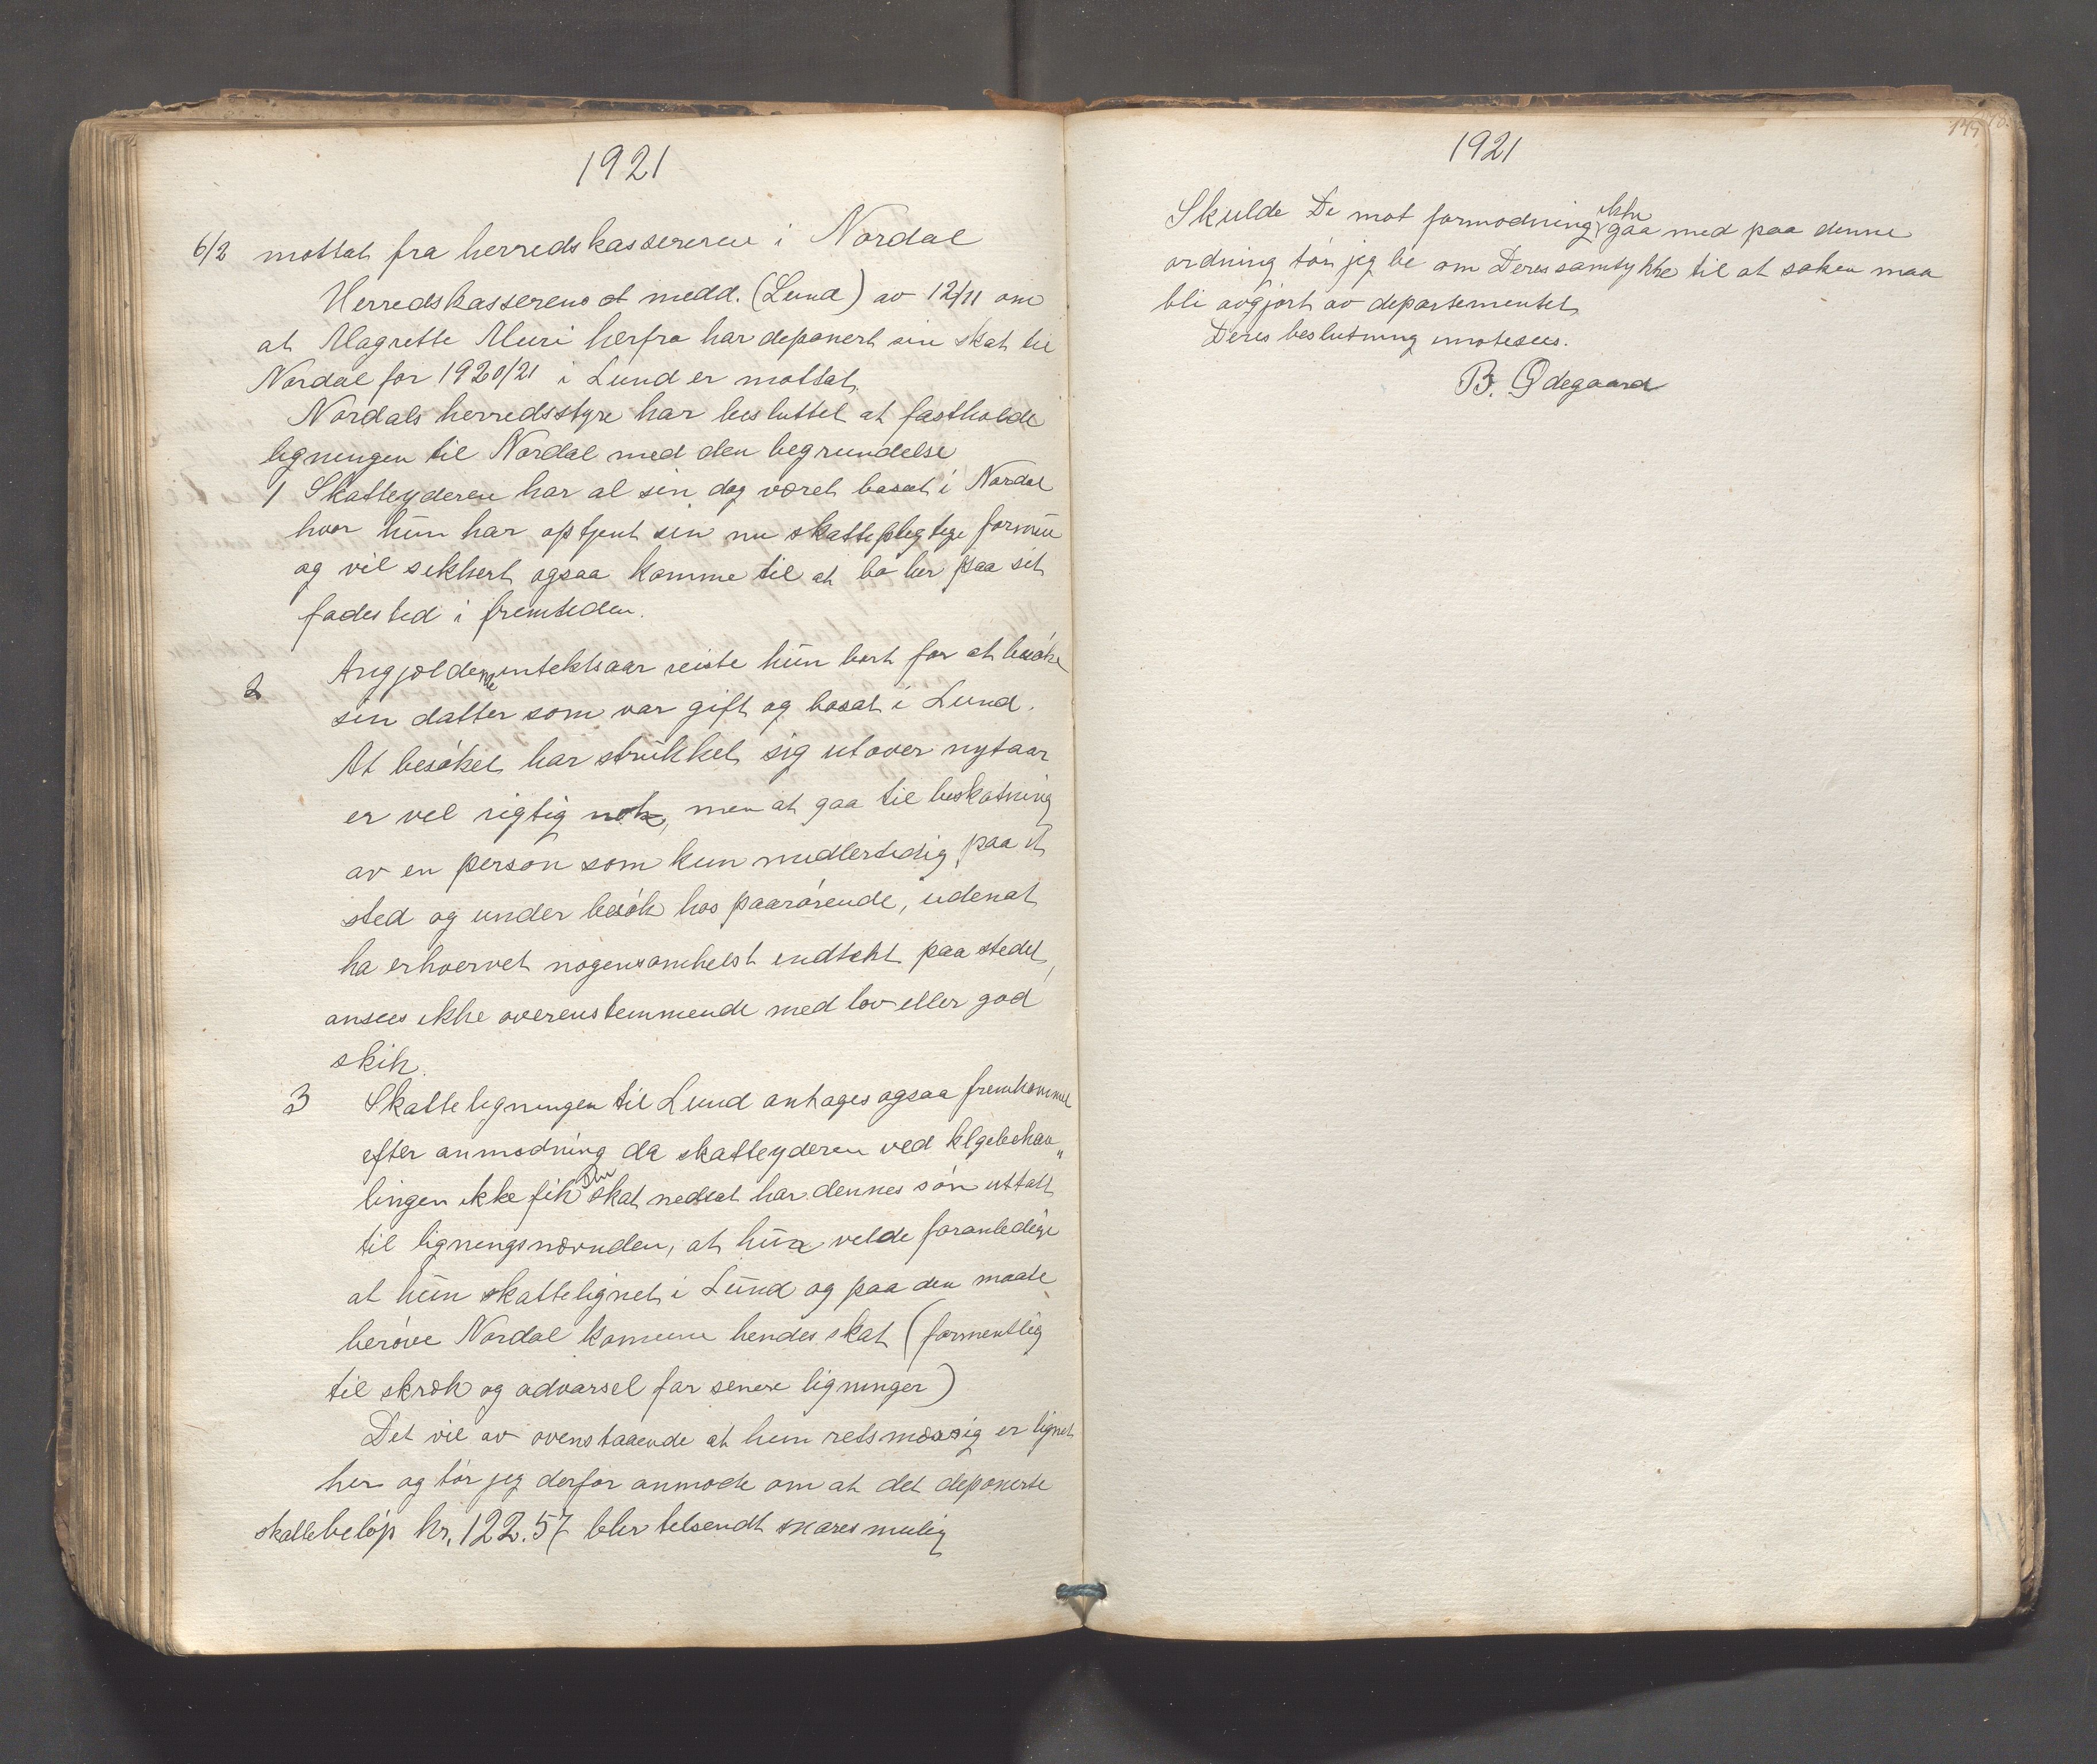 1921
6/2 mottat fra herredskassereren i Nordal
Herredskasserens st medd. (Lund) av 12/11 om
at Magrette Muri herfra har deponert sin skat til
Nordal for 1920/21 i Lund er mottat.
Nordals herredsstyre har besluttet at fastholde
ligningen til Nordal med den begrundelse
1 Skatteyderen har al sin dag været bosat i Nordal
hvor hun har optjent sin nu skattepligtige formue
og vil sikkert ogsaa komme til at bo her paa sit
fødested i fremtiden.
2 Angjældende intektsaar reiste hun bort for at besøke
sin datter som var gift og bosat i Lund.
At besøket har strukket sig utover nytaar
er vel rigtig nok, men at gaa til beskatning
av en person som kun midlertidig paa et
sted og under besøk hos paarørende, udenat
ha erhvervet nogensomhelst indtekt paa stedet,
ansees ikke overenstemmende med lov eller god
skik.
3 Skatteligningen til Lund antages ogsaa fremkommet
efter anmodning da skatteyderen ved klgebehan„
lingen ikke fik sin skat nedsat har dennes søn uttalt
til ligningsnævnden, at hun vilde foranledige
at hun skattelignet i Lund og paa den maate
berøve Nordal komune hendes skat (formentlig
til skræk og advarsel for senere ligninger)
Det vil av ovenstaaende at hun retsmæssig er lignet
her og tør jeg derfor anmode om at det deponerte
skattebeløp kr. 122.57 blir tilsendt snarest mulig
1921
Skulde De mot formodning ikke gaa med paa denne
ordning tør jeg be om Deres samtykke til at saken maa
bli avgjort av departementet.
Deres beslutning imøtesees.
B. Ødegaard